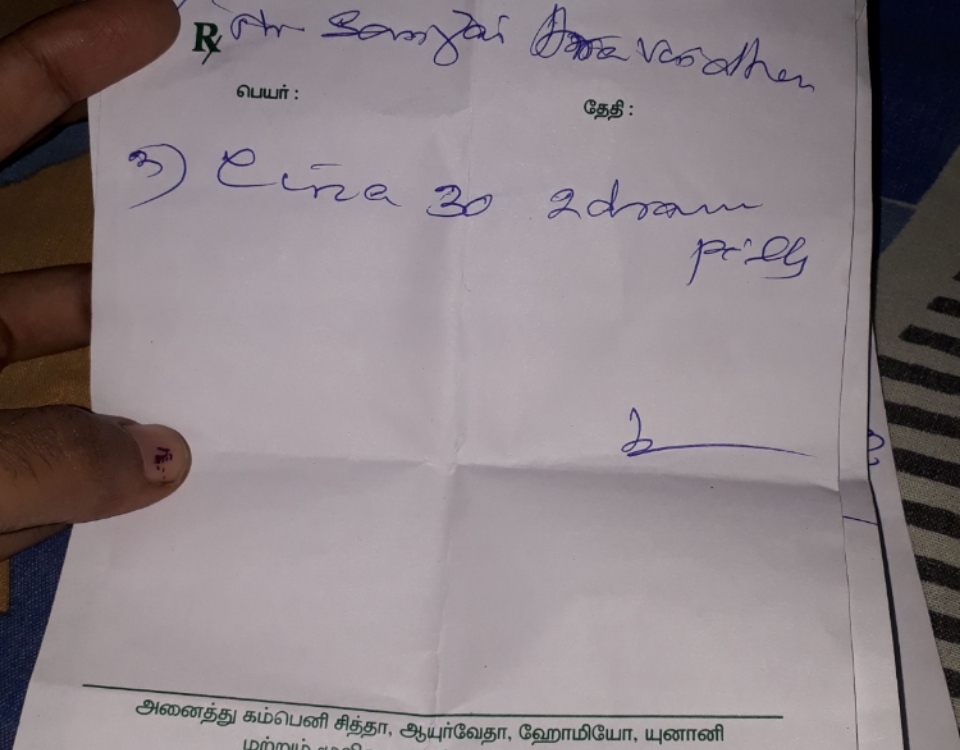 Rx Mr Sanjai Aravindhan
பெயர் : தேதி :
3) Cina 30 2dram
pills
அனைத்து கம்பெனி சித்தா, ஆயுர்வேதா, ஹோமியோ, யுனானி
மற்றும்